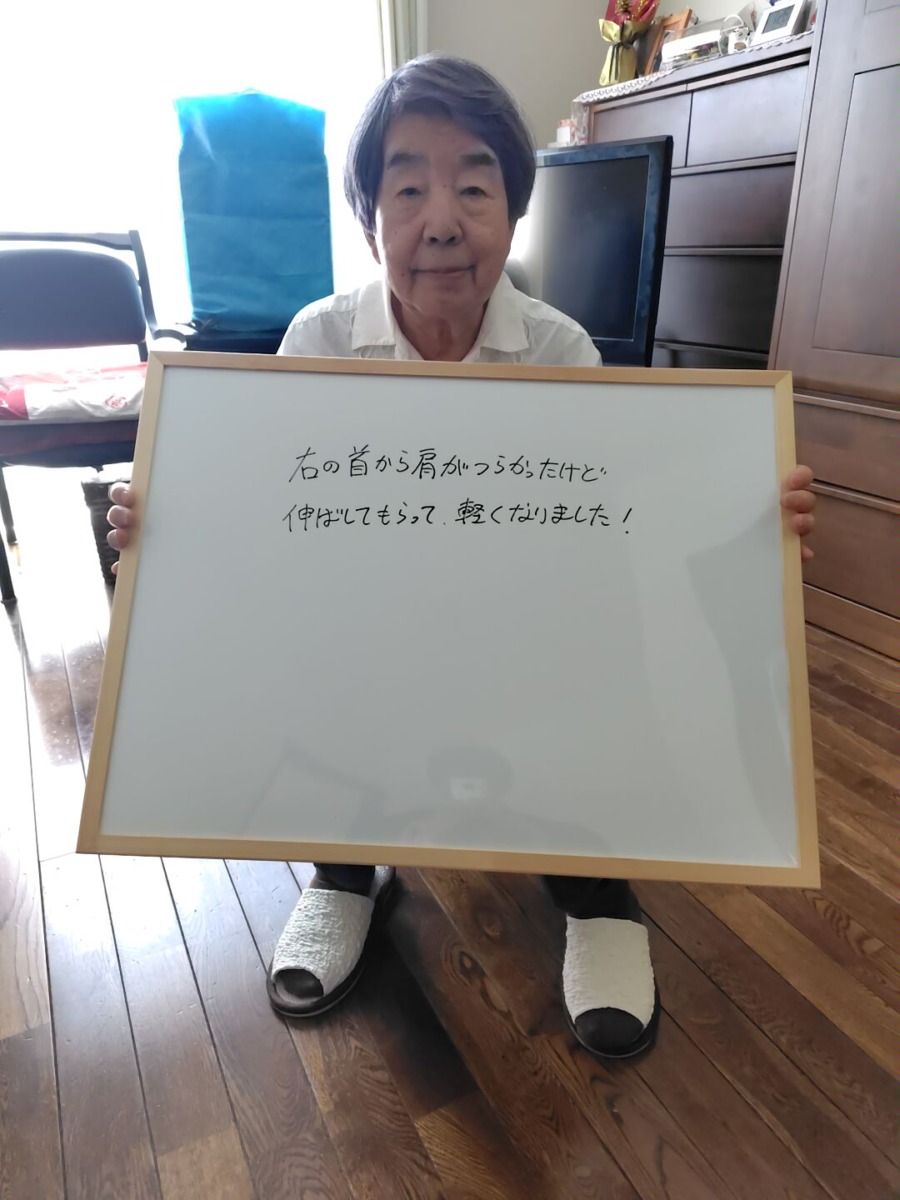 右の首から肩がつらかったけど
伸ばしてもらって、軽くなりました！